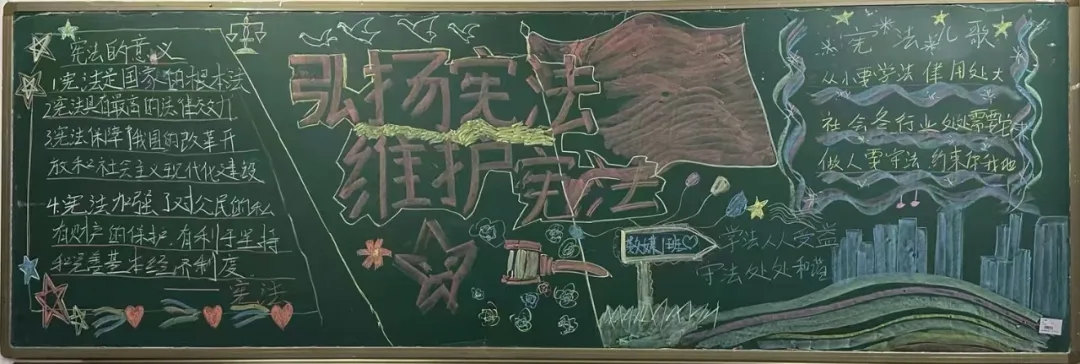 宪法的意义
1.宪法是国家的根本法
2.宪法具有最高的法律效力
3.宪法保障了我国的改革开
放和社会主义现代化建设
4.宪法加强了对公民的私
有财产的保护,有利于坚持
和完善基本经济制度
——宪法
弘扬宪法
维护宪法
宪法儿歌
从小要学法律用处大
社会各行业处处需要它
做人要守法约束你我他
班♡
学法人人受益
守法处处和谐